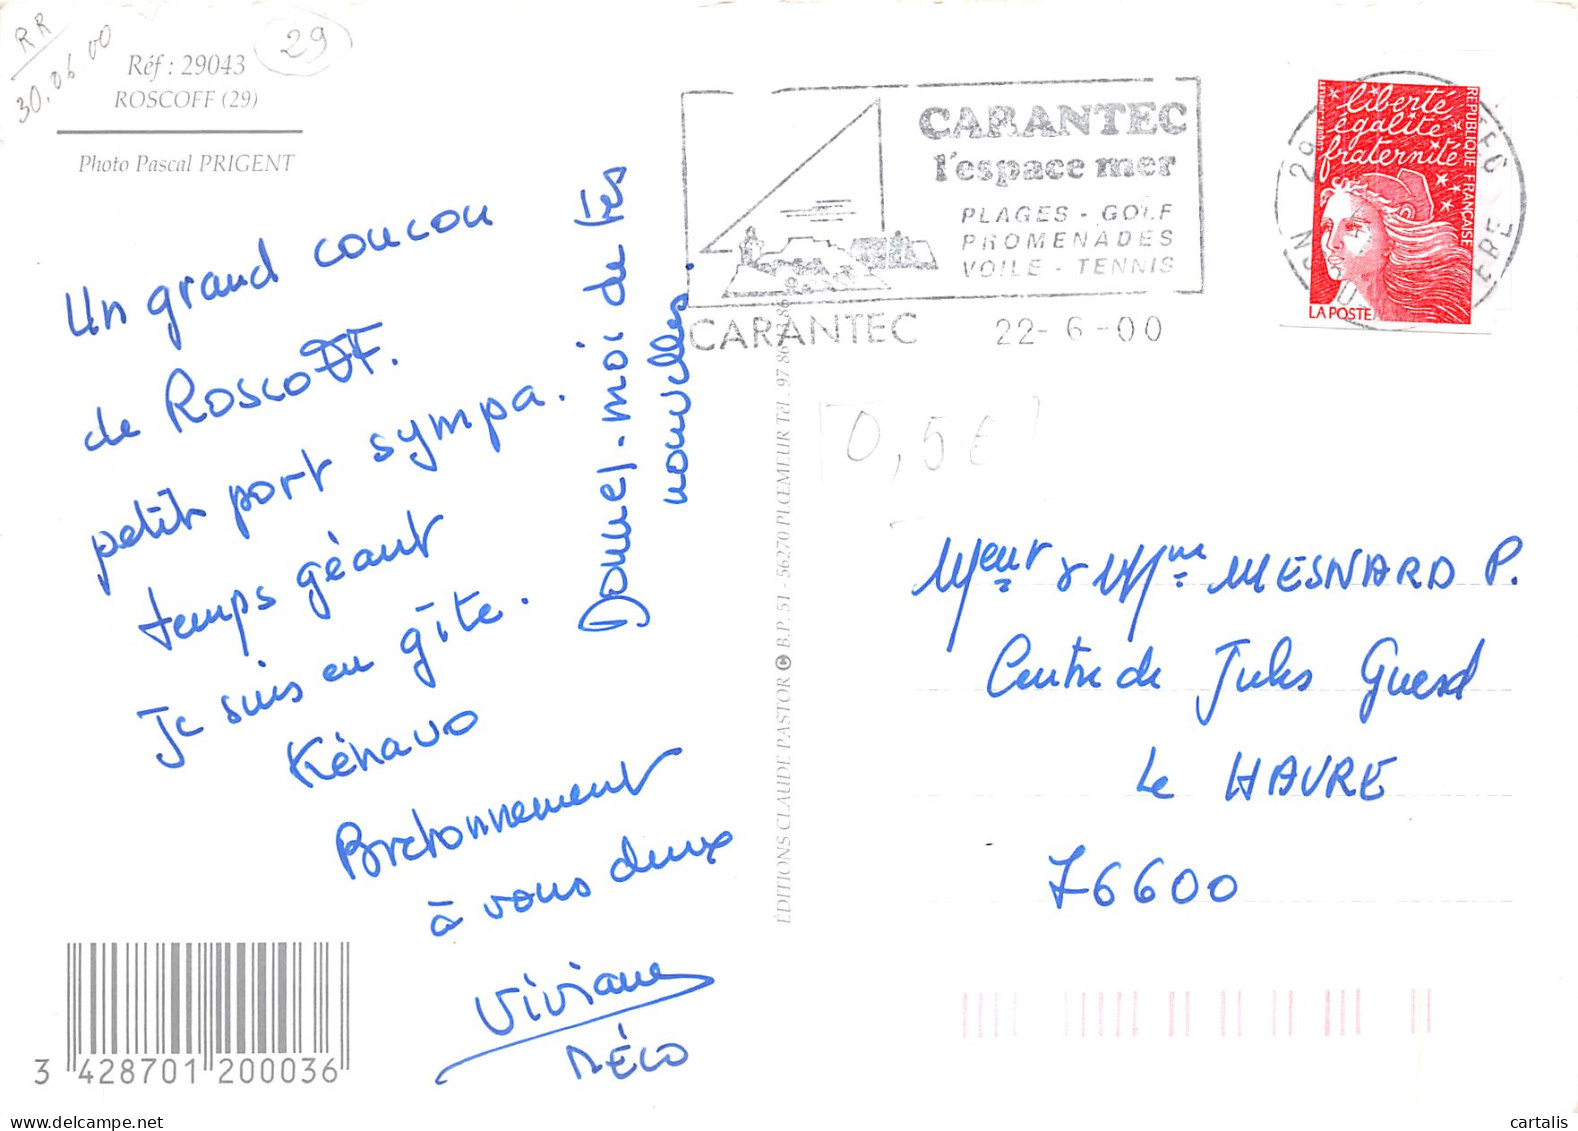 RR
30.06 00
29
Réf : 29043
ROSCOFF (29)
Photo Pascal PRIGENT
Un grand coucou
de ROSCOFF.
petit port sympa.
temps géant
Je suis en gîte.
Kénavo
Bretonnement
à vous deux
Viviane
MÉLO
Donnez-moi de tes
nouvelles.
3 428701 200036
ÉDITIONS CLAUDE PASTOR © B.P. 51 - 56270 PLŒMEUR Tél. 97 86
CARANTEC
l'espace mer
PLAGES - GOLF
PROMENADES
VOILE - TENNIS
CARANTEC 22-6-00
liberté
égalité
fraternité
RÉPUBLIQUE FRANÇAISE
LA POSTE
29
0,5€
Mseur & Mme MESNARD P.
Centre de Jules Guesd
Le HAVRE
76600
cartalis
www.delcampe.net